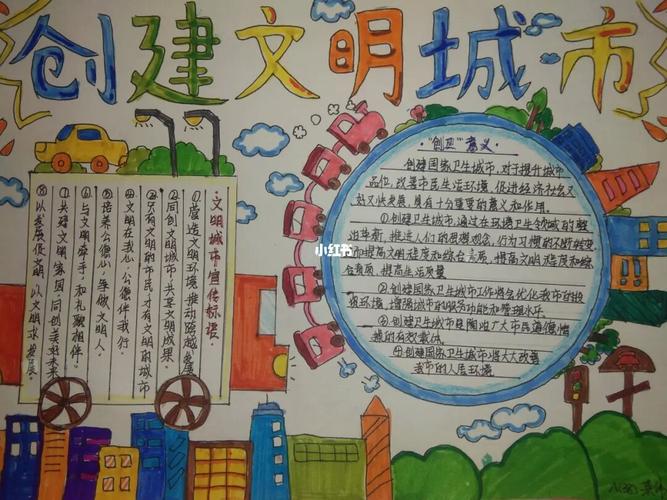 创建文明城市
文明城市宣传标语
①营造文明环境 推动跨越发展
②同创文明城市,共享文明成果。
③只有文明的市民,才有文明的城市
④文明在我心,公德伴我行。
⑤培养公德心,争做文明人。
⑥与文明牵手,和礼貌相伴
⑦共建文明家园,同创美好未来
⑧以发展促文明,以文明求发展。
小红书
"创卫"意义
创建国家卫生城市,对于提升城市
品位,改善市民生活环境,促进经济社会又
好又快发展,具有十分重要的意义和作用。
①创建卫生城市,通过在环境卫生领域的整
治革新,推进人们的思想观念,行为习惯的不断转变
提高文明程度和综合素质,提高文明程度和综
合素质,提高生活质量
②创建国家卫生城市工作将会优化我市的投
资环境,增强城市的服务功能和管理水平
③创建卫生城市是陶冶广大市民道德情
操的有效载体
④创建国家卫生城市将大大改善
我市的人居环境